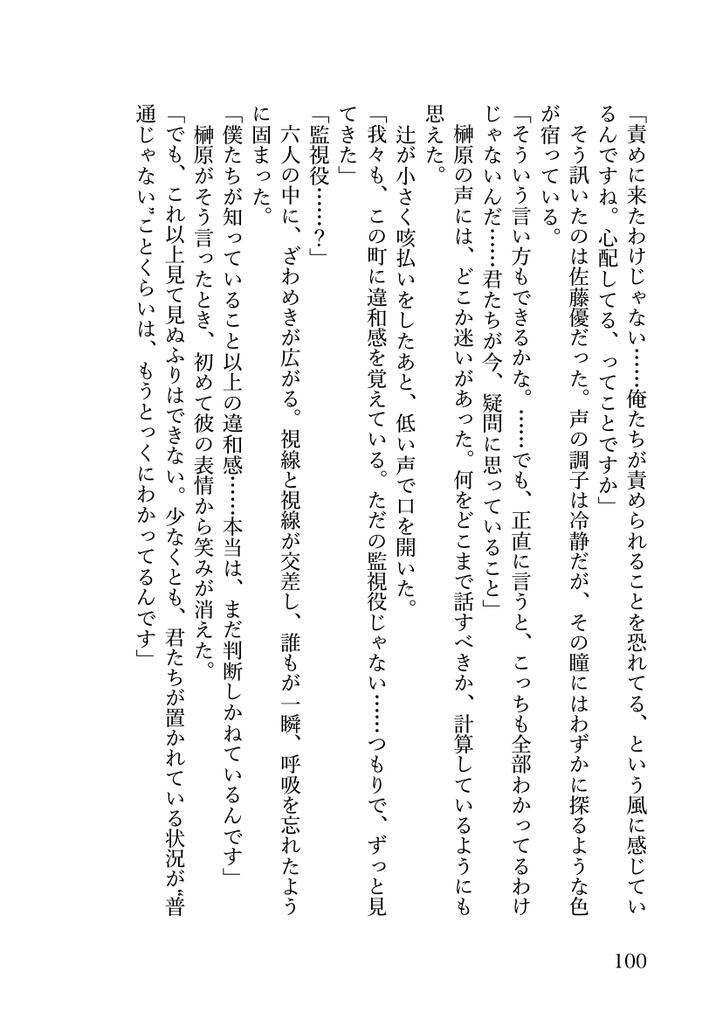 「責めに来たわけじゃない……俺たちが責められることを恐れてる、という風に感じてい
るんですね。心配してる、ってことですか」
　そう訊いたのは佐藤優だった。声の調子は冷静だが、その瞳にはわずかに探るような色
が宿っている。
「そういう言い方もできるかな。……でも、正直に言うと、こっちも全部わかってるわけ
じゃないんだ……君たちが今、疑問に思っていること」
　榊原の声には、どこか迷いがあった。何をどこまで話すべきか、計算しているようにも
思えた。
　辻が小さく咳払いをしたあと、低い声で口を開いた。
「我々も、この町に違和感を覚えている。ただの監視役じゃない……つもりで、ずっと見
てきた」
「監視役……？」
　六人の中に、ざわめきが広がる。視線と視線が交差し、誰もが一瞬、呼吸を忘れたよう
に固まった。
「僕たちが知っていること以上の違和感……本当は、まだ判断しかねているんです」
　榊原がそう言ったとき、初めて彼の表情から笑みが消えた。
「でも、これ以上見て見ぬふりはできない。少なくとも、君たちが置かれている状況が“普
通じゃない”ことくらいは、もうとっくにわかってるんです」
100